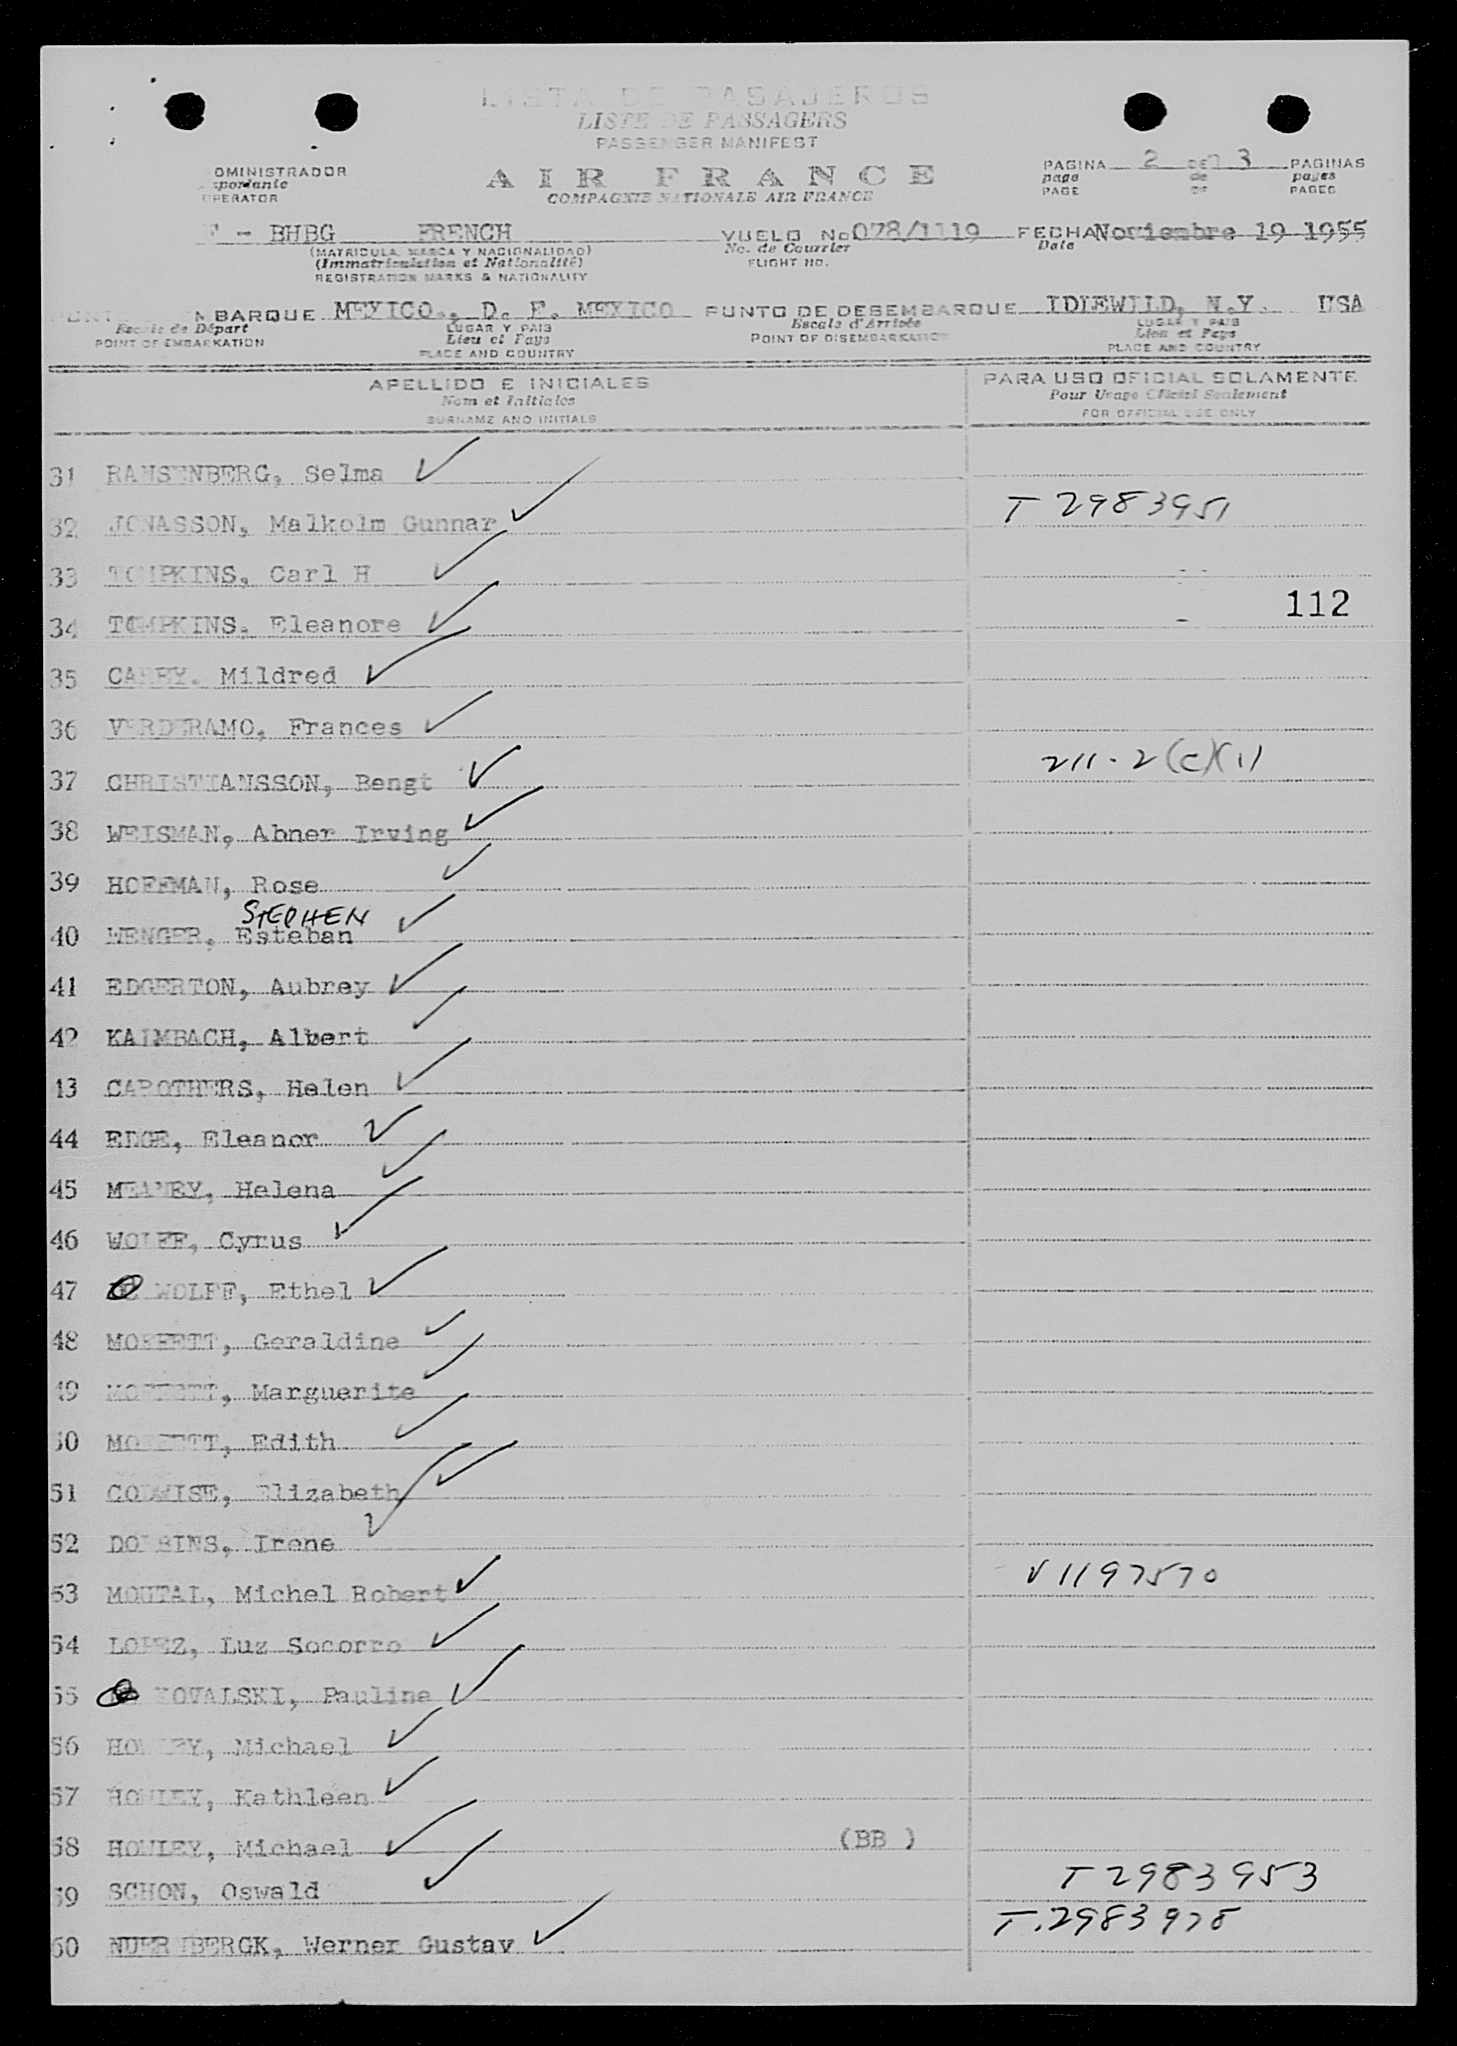 LISTA DE PASAJEROS
LISTE DE PASSAGERS
PASSENGER MANIFEST
OMINISTRADOR
OPERATOR
AIR FRANCE
COMPAGNIE NATIONALE AIR FRANCE
PAGINA 2 DE 3 PAGINAS
page de pages
PAGE OF PAGES
F - BHBG FRENCH VUELO No 078/1119 FECHA Noviembre 19 1955
(MATRICULA, MARCA Y NACIONALIDAD) No. de Courrier Date
(Immatriculation et Nationalité) FLIGHT NO.
REGISTRATION MARKS & NATIONALITY
MBARQUE MEXICO., D. F. MEXICO PUNTO DE DESEMBARQUE IDLEWILD, N.Y. USA
Escale de Départ LUGAR Y PAIS Escale d'Arrivée LUGAR Y PAIS
POINT OF EMBARKATION Lieu et Pays POINT OF DISEMBARKATION Lieu et Pays
PLACE AND COUNTRY PLACE AND COUNTRY
APELLIDO E INICIALES PARA USO OFICIAL SOLAMENTE
Nom et Initiales Pour Usage Officiel Seulement
SURNAME AND INITIALS FOR OFFICIAL USE ONLY
31 RAMSENBERG, Selma ✓
32 JONASSON, Malkolm Gunnar ✓ T 2983951
33 TOMPKINS, Carl H ✓
34 TOMPKINS. Eleanore ✓ 112
35 CAREY. Mildred ✓
36 VERDERAMO, Frances ✓
37 CHRISTIANSSON, Bengt ✓ 211.2(c)(1)
38 WEISMAN, Abner Irving ✓
39 HOFFMAN, Rose ✓
STEPHEN
40 WENGER, Esteban ✓
41 EDGERTON, Aubrey ✓
42 KAIMBACH, Albert ✓
43 CAROTHERS, Helen ✓
44 EDGE, Eleanor ✓
45 MEANEY, Helena ✓
46 WOLFF, Cyrus ✓
47 WOLFF, Ethel ✓
48 MOFFETT, Geraldine ✓
49 MOFFETT, Marguerite ✓
50 MOFFETT, Edith ✓
51 COLWISE, Elizabeth ✓
52 DOBBINS, Irene ✓
53 MOUTAL, Michel Robert ✓ V 1197570
54 LOPEZ, Luz Socorro ✓
55 KOVALSKI, Pauline ✓
56 HOWLEY, Michael ✓
57 HOWLEY, Kathleen ✓
58 HOWLEY, Michael ✓ (BB )
59 SCHON, Oswald ✓ T 2983953
60 NUERNBERGK, Werner Gustav ✓ T.2983978